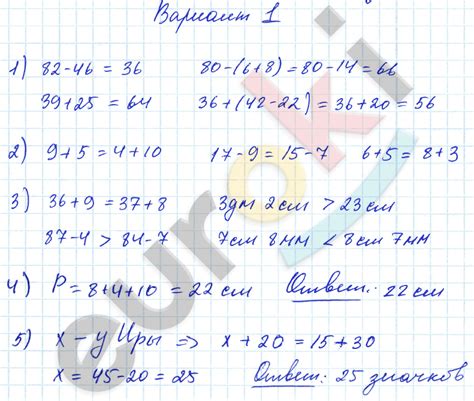 Вариант 1
1) 82-46 = 36 80-(6+8) = 80-14 = 66
39+25 = 64 36+(42-22) = 36+20 = 56
2) 9+5 = 4+10 17-9 = 15-7 6+5 = 8+3
3) 36+9 = 37+8 3дм 2см > 23см
87-4 > 84-7 7см 8мм < 8см 7мм
4) P = 8+4+10 = 22 см Ответ: 22 см
5) x - у Иры => x + 20 = 15+30
x = 45-20 = 25 Ответ: 25 значков
euroki